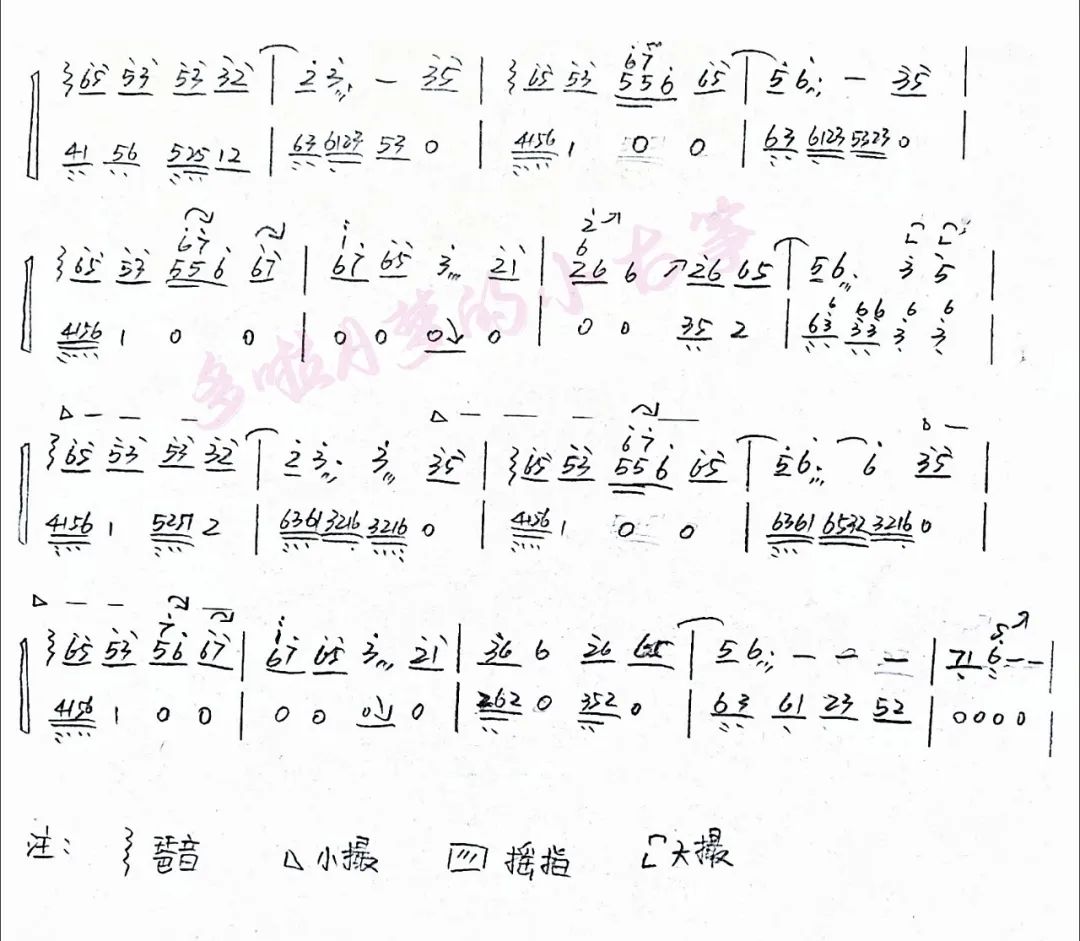 65 53 53 32 | 2 3 — 35 | 65 53 67 5 556 65 | 5 6 — 35 |
41 56 525 12 | 63 6123 53 0 | 4156 1 0 0 | 63 6123 5323 0 |
65 53 67 556 67 | i 67 65 3 21 | 2 6 266 6 ↗ 26 65 | 56 3 5 |
4156 1 0 0 | 0 0 0 0 | 0 0 35 2 | 6 66 6 6 63 33 3 3 |
△ — — — △ — — —
65 53 53 32 | 2 3 3 35 | 65 53 67 556 65 | 5 6 6 35 |
4156 1 5251 2 | 6361 3216 3216 0 | 4156 1 0 0 | 6361 6532 3216 0 |
△ — —
65 53 7 56 67 | i 67 65 3 21 | 36 6 26 65 | 56 — — — | 71 5 6 — — |
4156 1 0 0 | 0 0 0 0 | 262 0 352 0 | 63 61 23 52 | 0 0 0 0 |
多啦月梦的小古筝
注： 琶音 △小撮 摇指 大撮